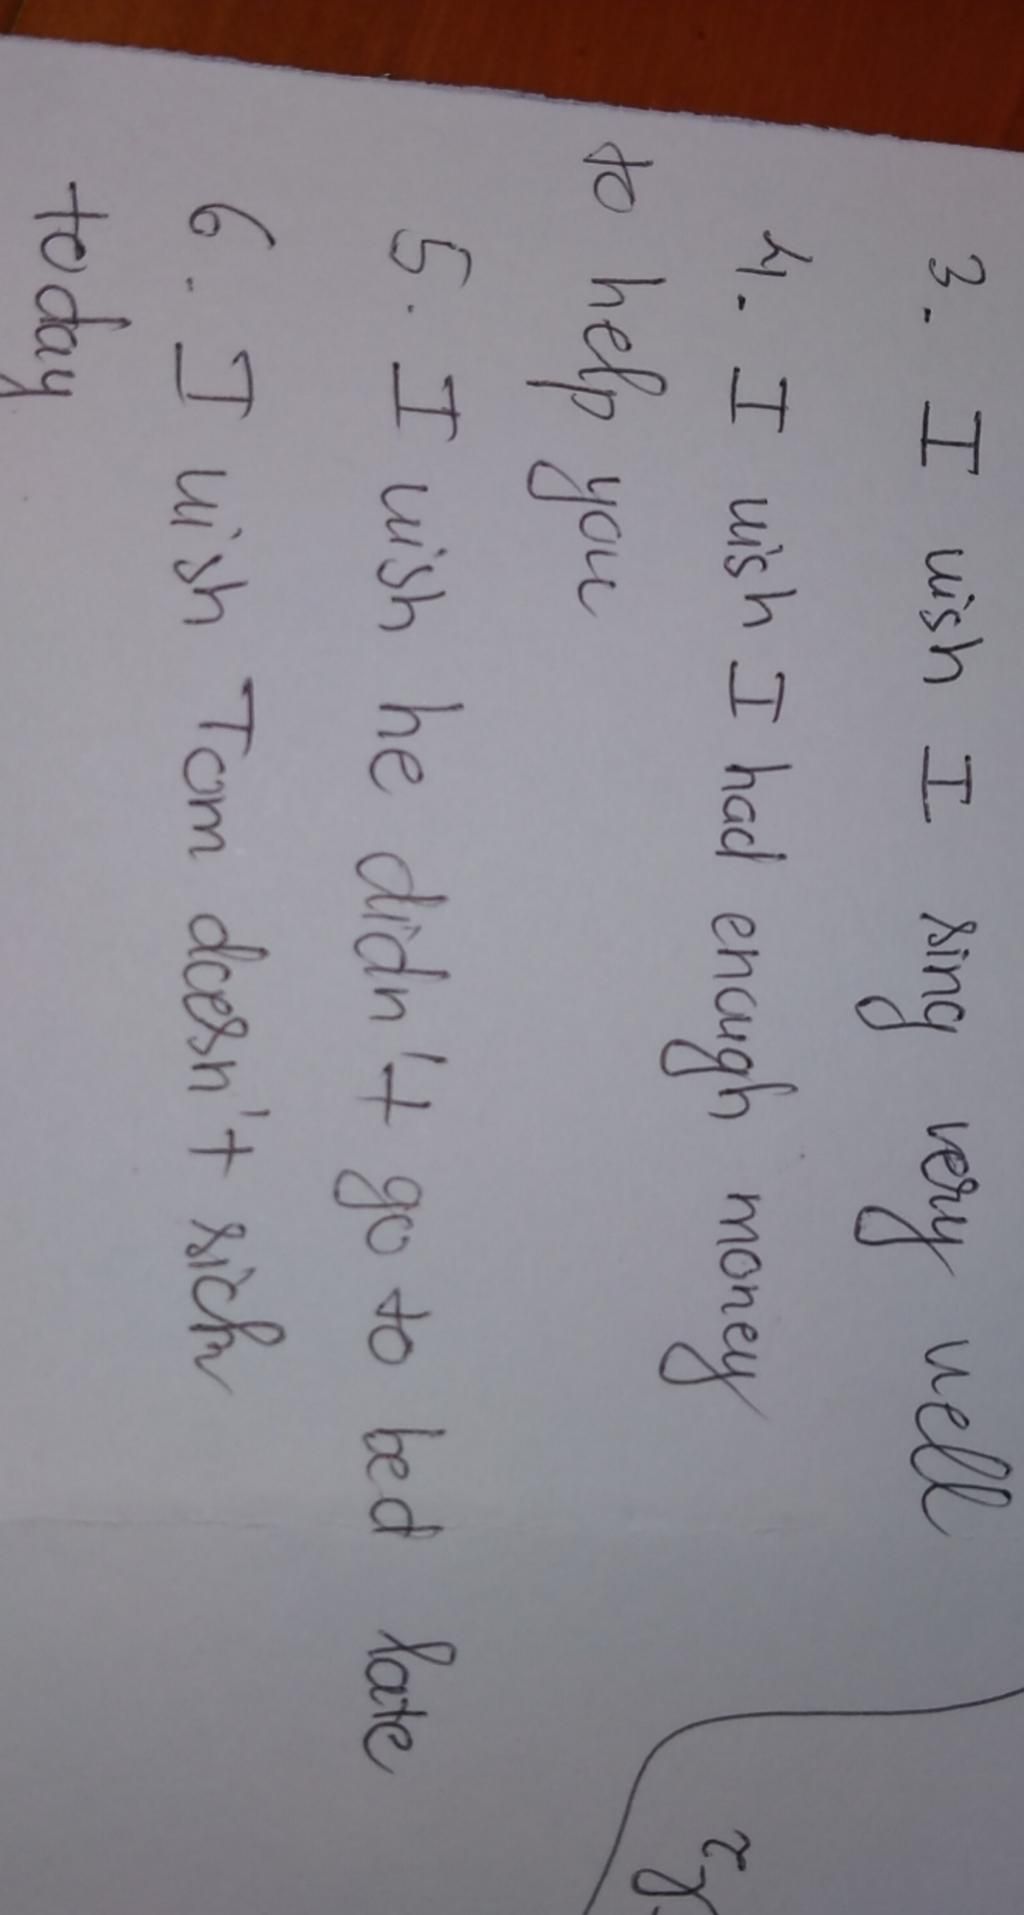 3. I wish I sing very well
4. I wish I had enough money
to help you
5. I wish he didn't go to bed late
6. I wish Tom doesn't sick
today